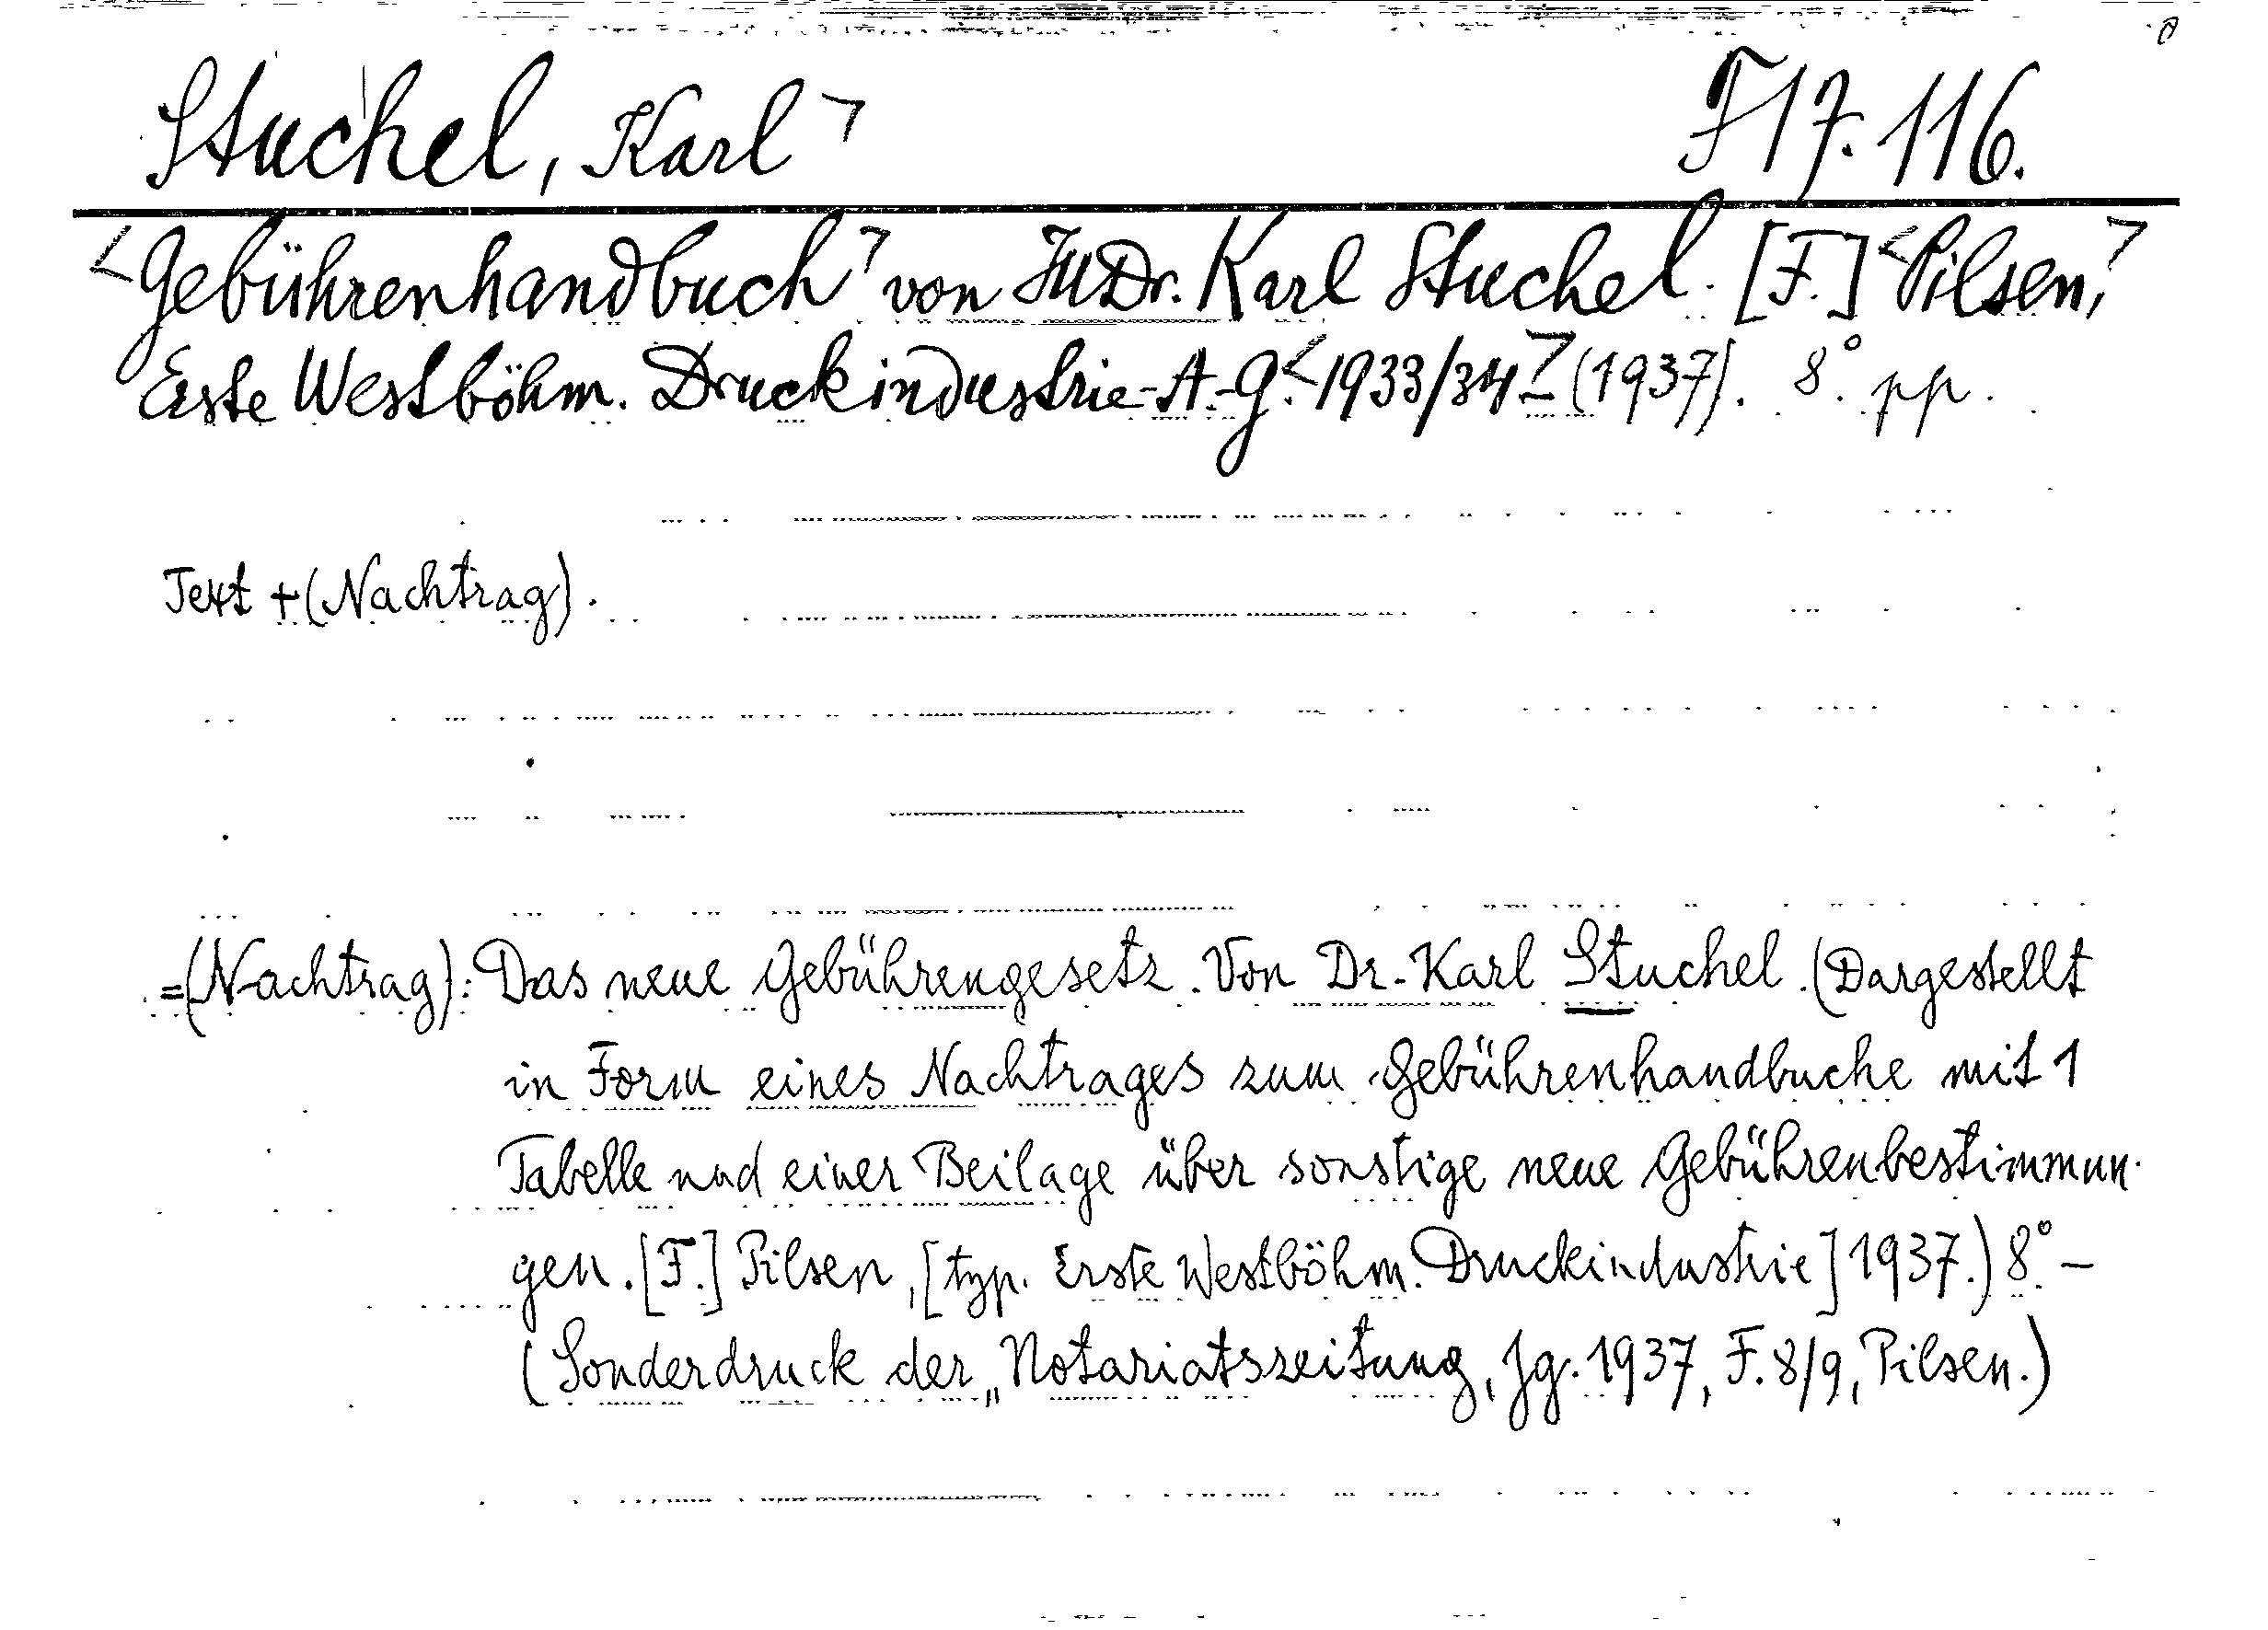 Stuchel, Karl> F 17.116.
<Gebührenhandbuch> von JUDr. Karl Stuchel. [F.] <Pilsen,>
Erste Westböhm. Druckindustrie-A.-G.<1933/34>-(1937). 8°. pp.
Text + (Nachtrag).
=(Nachtrag): Das neue Gebührengesetz. Von Dr. Karl Stuchel. (Dargestellt
in Form eines Nachtrages zum Gebührenhandbuche mit 1
Tabelle und einer Beilage über sonstige neue Gebührenbestimmun-
gen. [F.] Pilsen, [typ. Erste Westböhm. Druckindustrie] 1937.) 8°. –
(Sonderdruck der „Notariatszeitung, Jg. 1937, F. 8/9, Pilsen.)